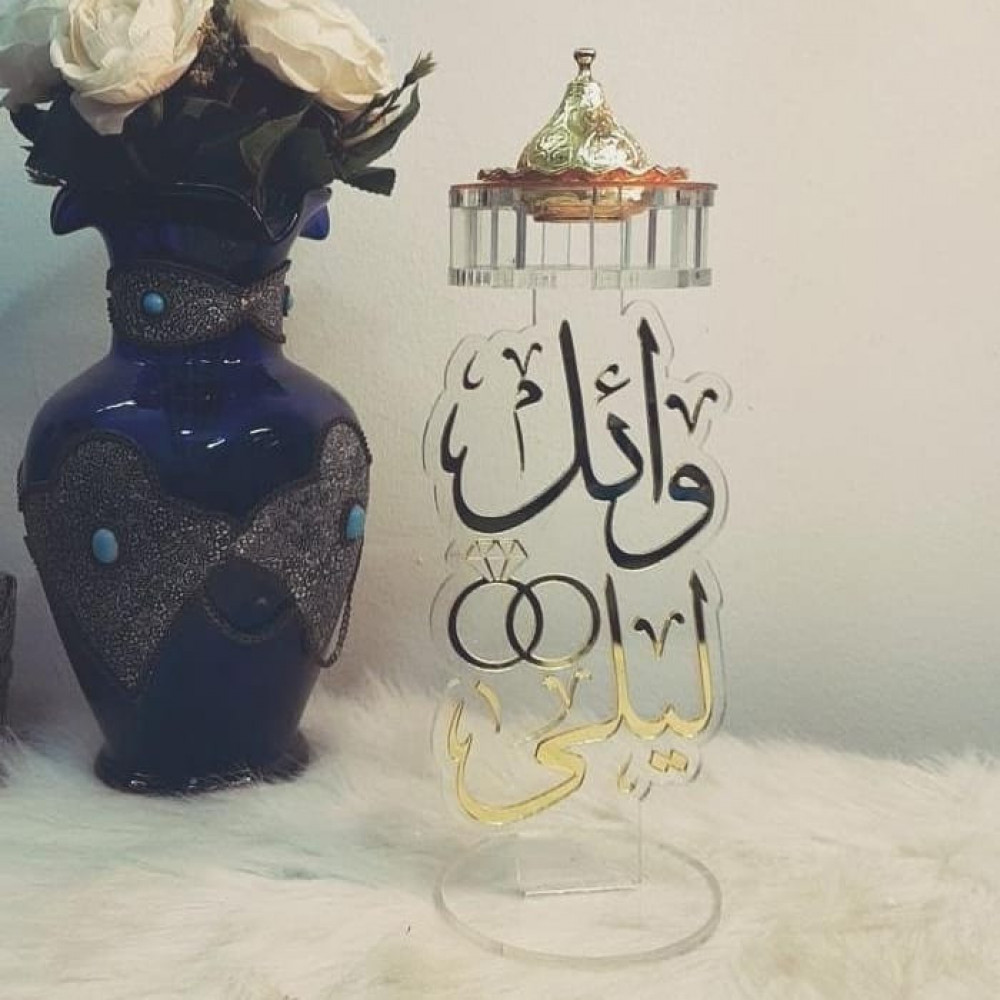 وائل
ليلى